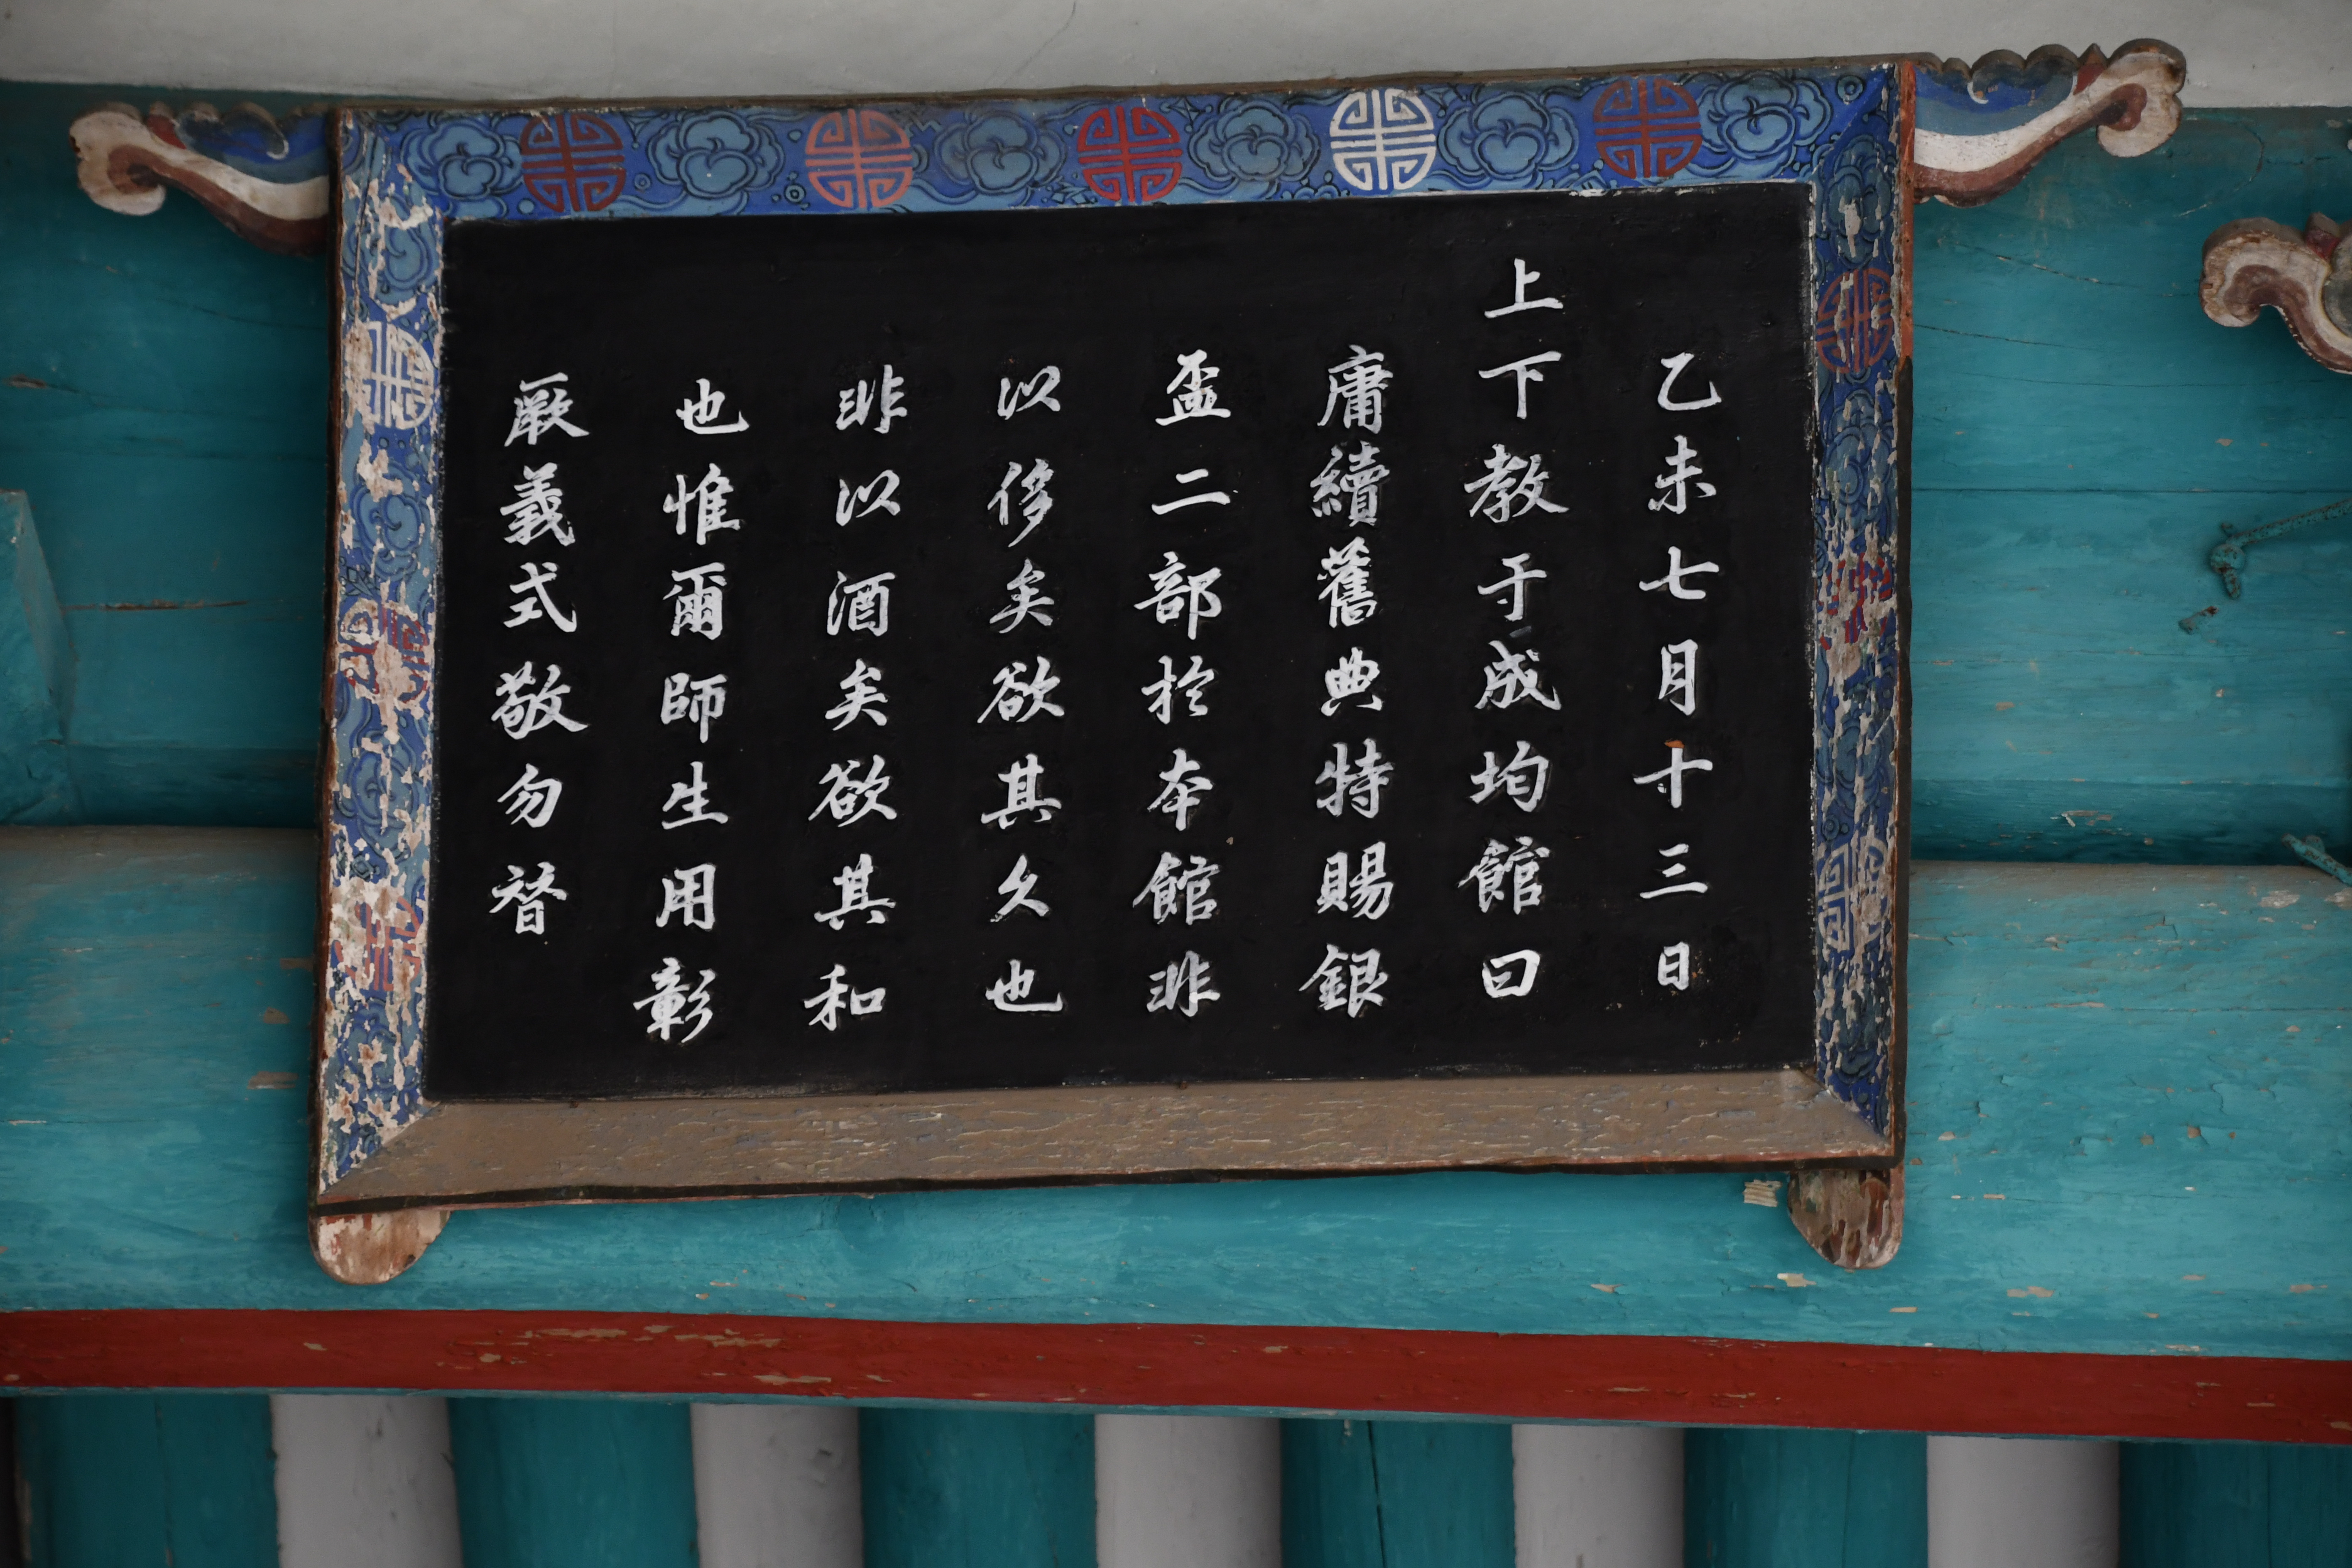 乙未七月十三日
上下教于成均館曰
庸續舊典特賜銀
盃二部於本館非
以侈矣欲其久也
非以酒矣欲其和
也惟爾師生用彰
厥義式敬勿替